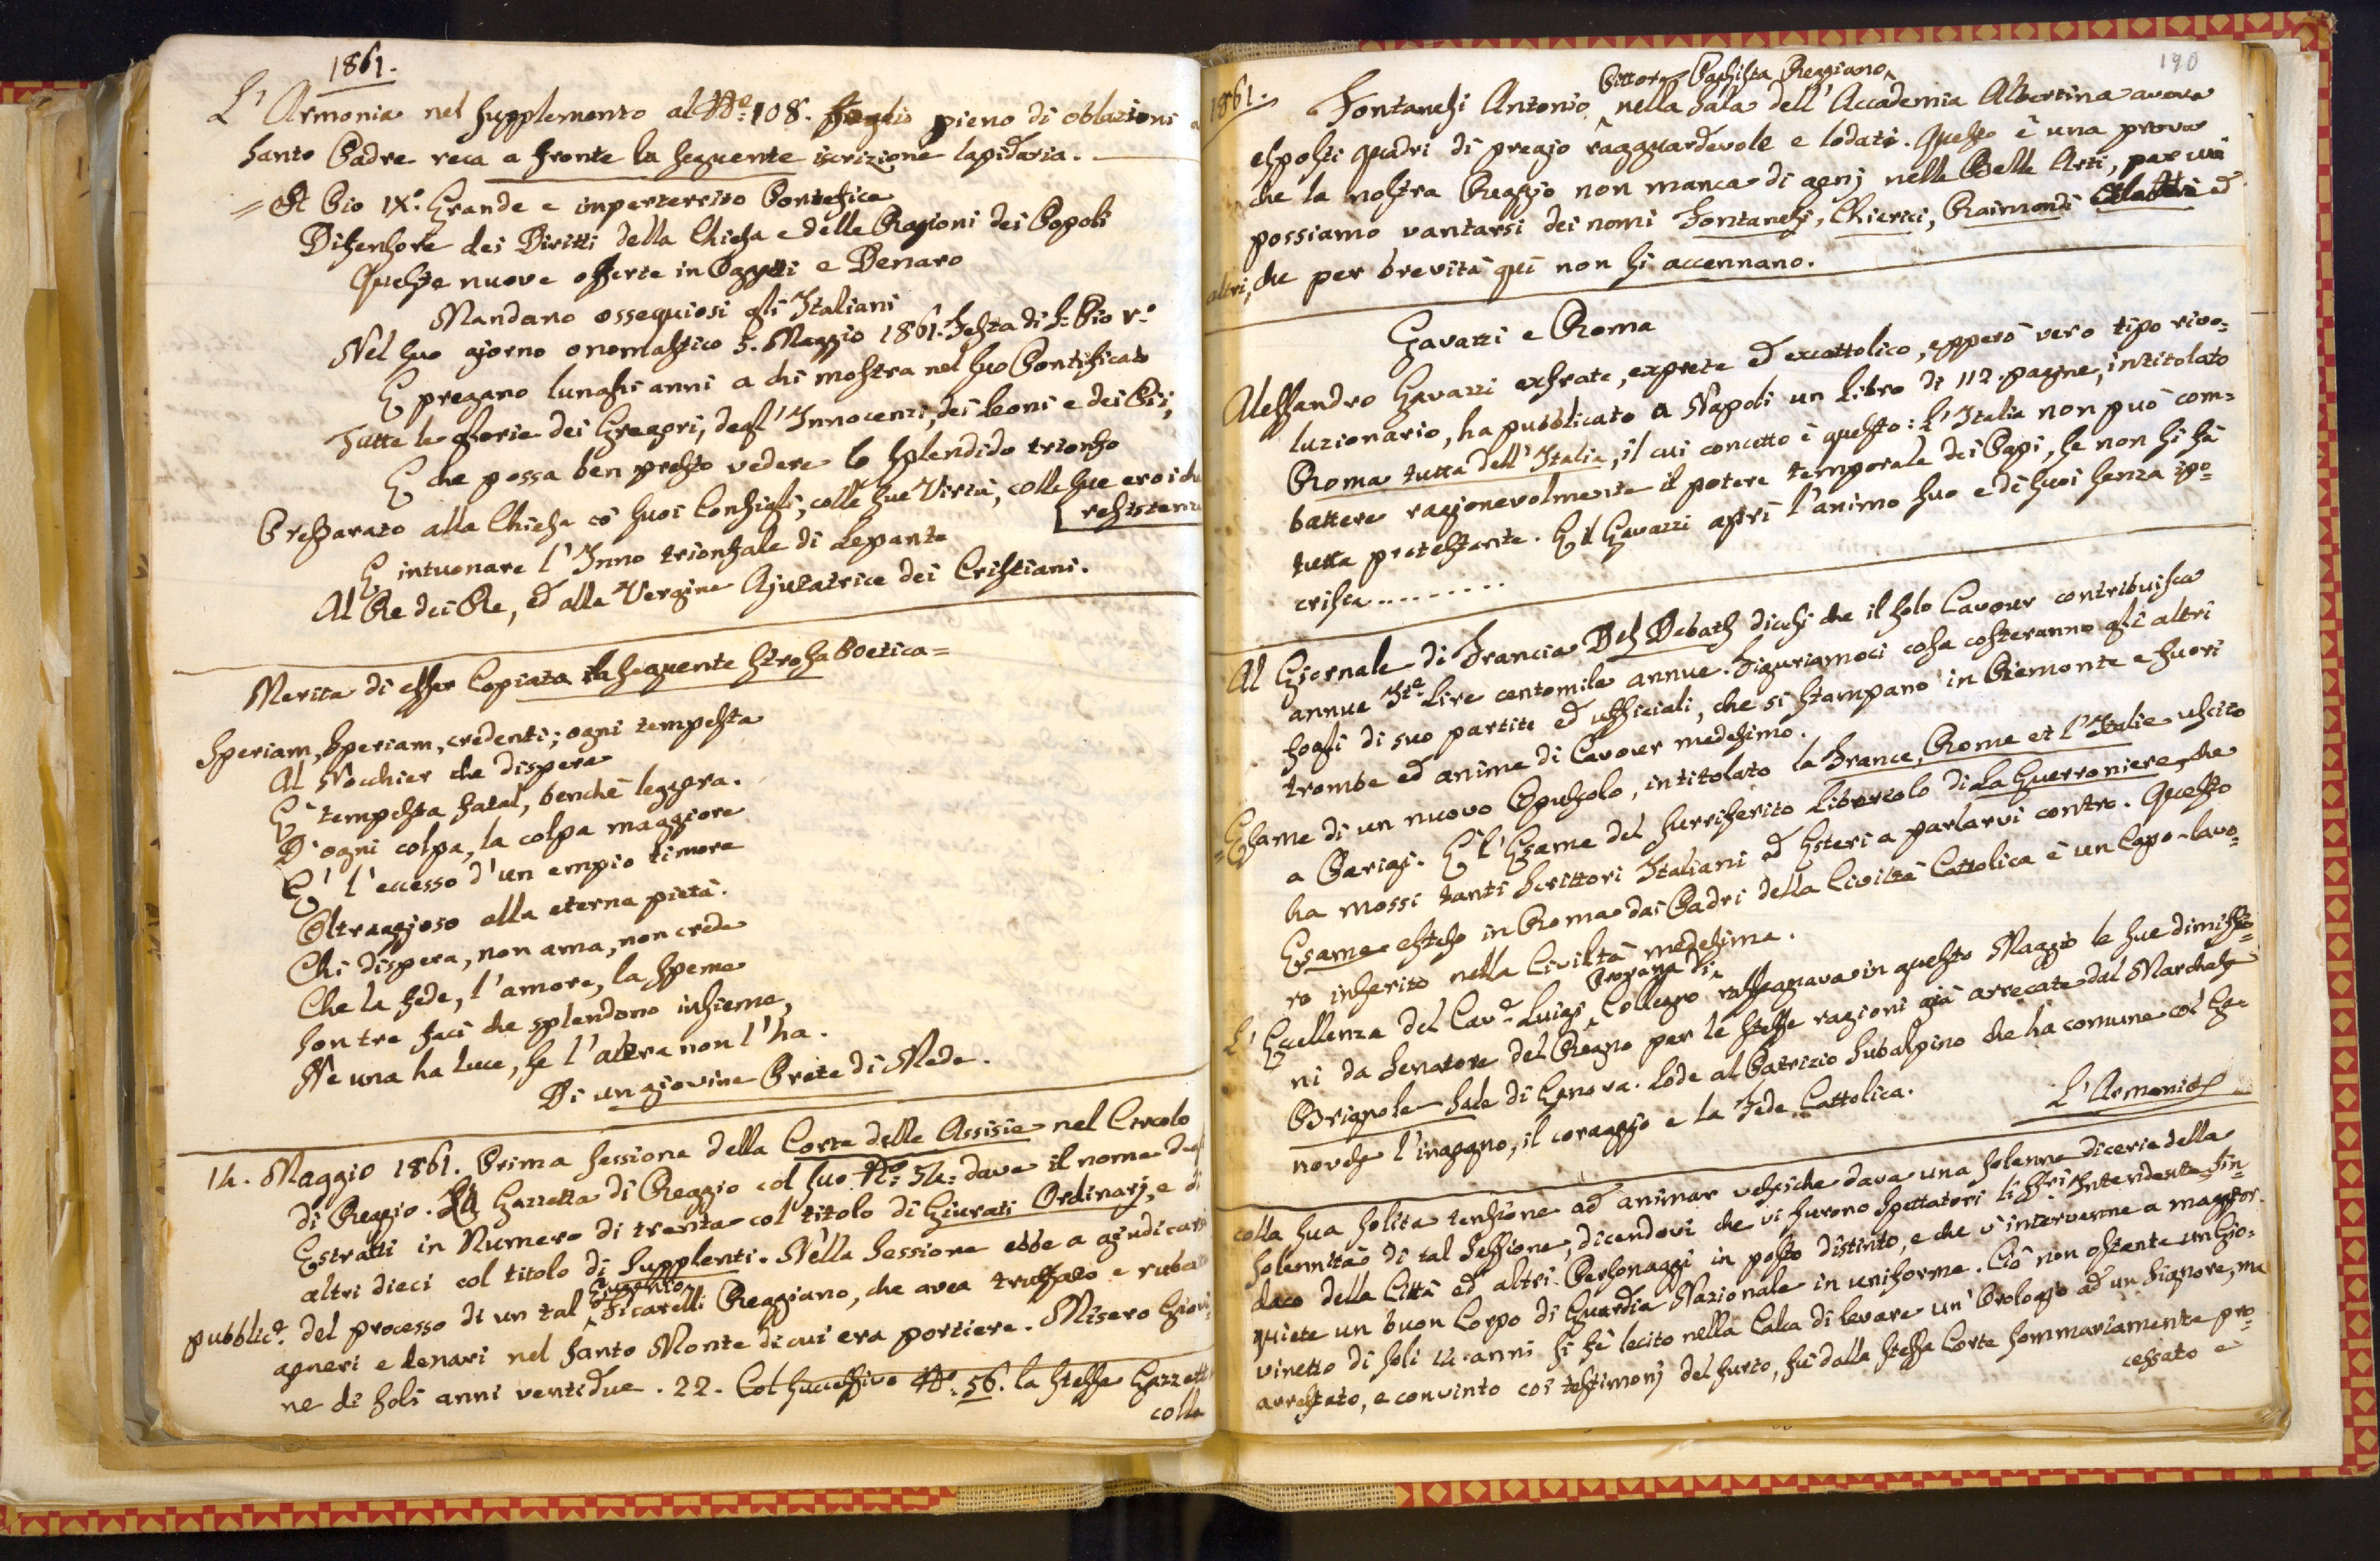 1861.
L'Armonia nel supplemento al N.º 108. foglio pieno di oblazioni a
Santo Padre reca a fronte la seguente iscrizione lapidaria.
= A Pio IX.º Grande e imperterrito Pontefice
Difensore dei Diritti della Chiesa e delle Ragioni dei Popoli
Queste nuove offerte in Oggetti e Denaro
Mandano ossequiosi gli Italiani
Nel suo giorno onomastico 5. Maggio 1861. Festa di S. Pio V.º
E pregano lunghi anni a chi mostra nel suo Pontificato
Tutte le glorie dei Gregori, degl'Innocenzi, dei Leoni e dei Pii,
E che possa ben presto vedere lo splendido trionfo
Preparato alla Chiesa co' suoi Consigli, colle sue Virtù, colle sue eroiche
[resistenze
E intuonare l'Inno trionfale di Lepanto
Al Re dei Re, ed alla Vergine Ajutatrice dei Cristiani.
Merita di esser Copiata la seguente strofa Poetica =
Speriam, speriam, credenti; ogni tempesta
Al Nocchier che dispera
E' tempesta fatal, benchè leggera.
D'ogni colpa, la colpa maggiore
E' l'eccesso d'un empio timore
Oltraggioso alla eterna pietà.
Chi dispera, non ama, non crede
Che la fede, l'amore, la speme
Son tre faci che splendono insieme,
Ne una ha luce, se l'altra non l'ha.
Di un giovine Prete di Mede.
14. Maggio 1861. Prima sessione della Corte delle Assisie nel Circolo
di Reggio. La Gazzetta di Reggio col suo N.º 54: dava il nome degl
Estratti in Numero di trenta col titolo di Giurati Ordinarj, e di
altri dieci col titolo di Supplenti. Nella Sessione ebbe a giudicarsi
Eugenio
pubblic.e del processo di un tal ^ Ficarelli Reggiano, che avea truffato e rubato
agneri e denari nel Santo Monte di cui era portiere. Misero Giovi=
ne di soli anni ventidue. 22. Col successivo N.º 56. la stessa Gazzetta
colla
190
1861.
Pittore Paesista Reggiano
Fontanesi Antonio ^ nella Sala dell'Accademia Albertina aveva
esposti quadri di pregio ragguardevole e lodati. Questo è una prova
che la nostra Reggio non manca di genj nelle Belle Arti, per cui
possiamo vantarsi dei nomi Fontanesi, Chierici, Raimondi ed
altri, che per brevità quì non si accennano.
Gavazzi e Roma
Alessandro Gavazzi exfrate, exprete ed excattolico, epperò vero tipo rivo=
luzionario, ha pubblicato a Napoli un libro di 112. pagine, intitolato
Roma tutta dell'Italia, il cui concetto è questo: L'Italia non può com=
battere ragionevolmente il potere temporale dei Papi, se non si fà
tutta protestante. E il Gavazzi aprì l'animo suo e di suoi senza ipo=
crisia.........
Al Giornale di Francia Des Debats dicesi che il solo Cavour contribuisca
annue It.e Lire centomila annue. Figuriamoci cosa costeranno gli altri
fogli di suo partito ed ufficiali, che si stampano in Piemonte e fuori
trombe ed anime di Cavour medesimo.
= Esame di un nuovo Opuscolo, intitolato la France, Rome et l'Italie uscito
a Parigi. E l'Esame del surriferito libercolo di La Guerroniere, che
ha mossi tanti Scrittori Italiani ed Esteri a parlarvi contro. Questo
Esame esteso in Roma dai Padri della Civiltà Cattolica è un Capo-lavo=
ro inserito nella Civiltà medesima.
Provana di
L'Eccellenza del Cav.e Luigi ^ Collegno rassegnava in questo Maggio le sue dimissio=
ni da Senatore del Regno per le stesse ragioni già arrecate dal Marchese
Brignole Sale di Genova. Lode al Patrizio Subalpino che ha comune col Ge=
novese l'ingegno, il coraggio e la Fede Cattolica.
L'Armonia
colla sua solita tensione ad animar vesiche dava una solenne diceria della
solennità di tal Sessione, dicendovi che vi furono Spettatori li SSri Intendente, Sin=
daco della Città ed altri Personaggi in posto distinto, e che v'intervenne a maggior
quiete un buon Corpo di Guardia Nazionale in uniforme. Ciò non ostante un Gio=
vinetto di soli 14. anni si fè lecito nella Calca di levare un'Orologio ad un Signore, ma
arrestato, e convinto coi testimonj del furto, fù dalla stessa Corte sommariamente pro=
cessato e